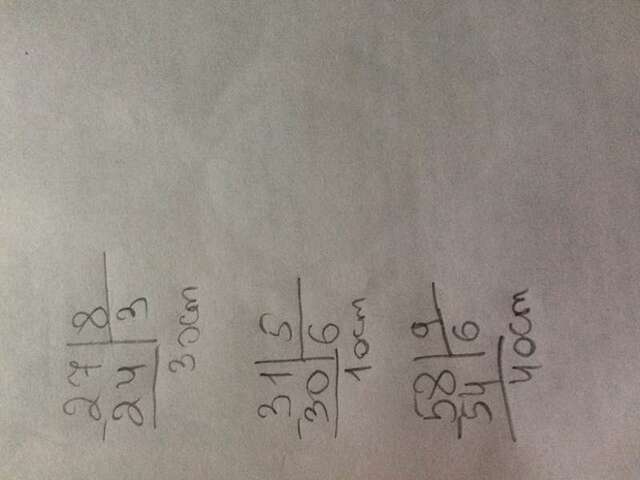 - 27 | 8
24 | 3
3 ост
- 31 | 5
30 | 6
1 ост
- 58 | 9
54 | 6
4 ост